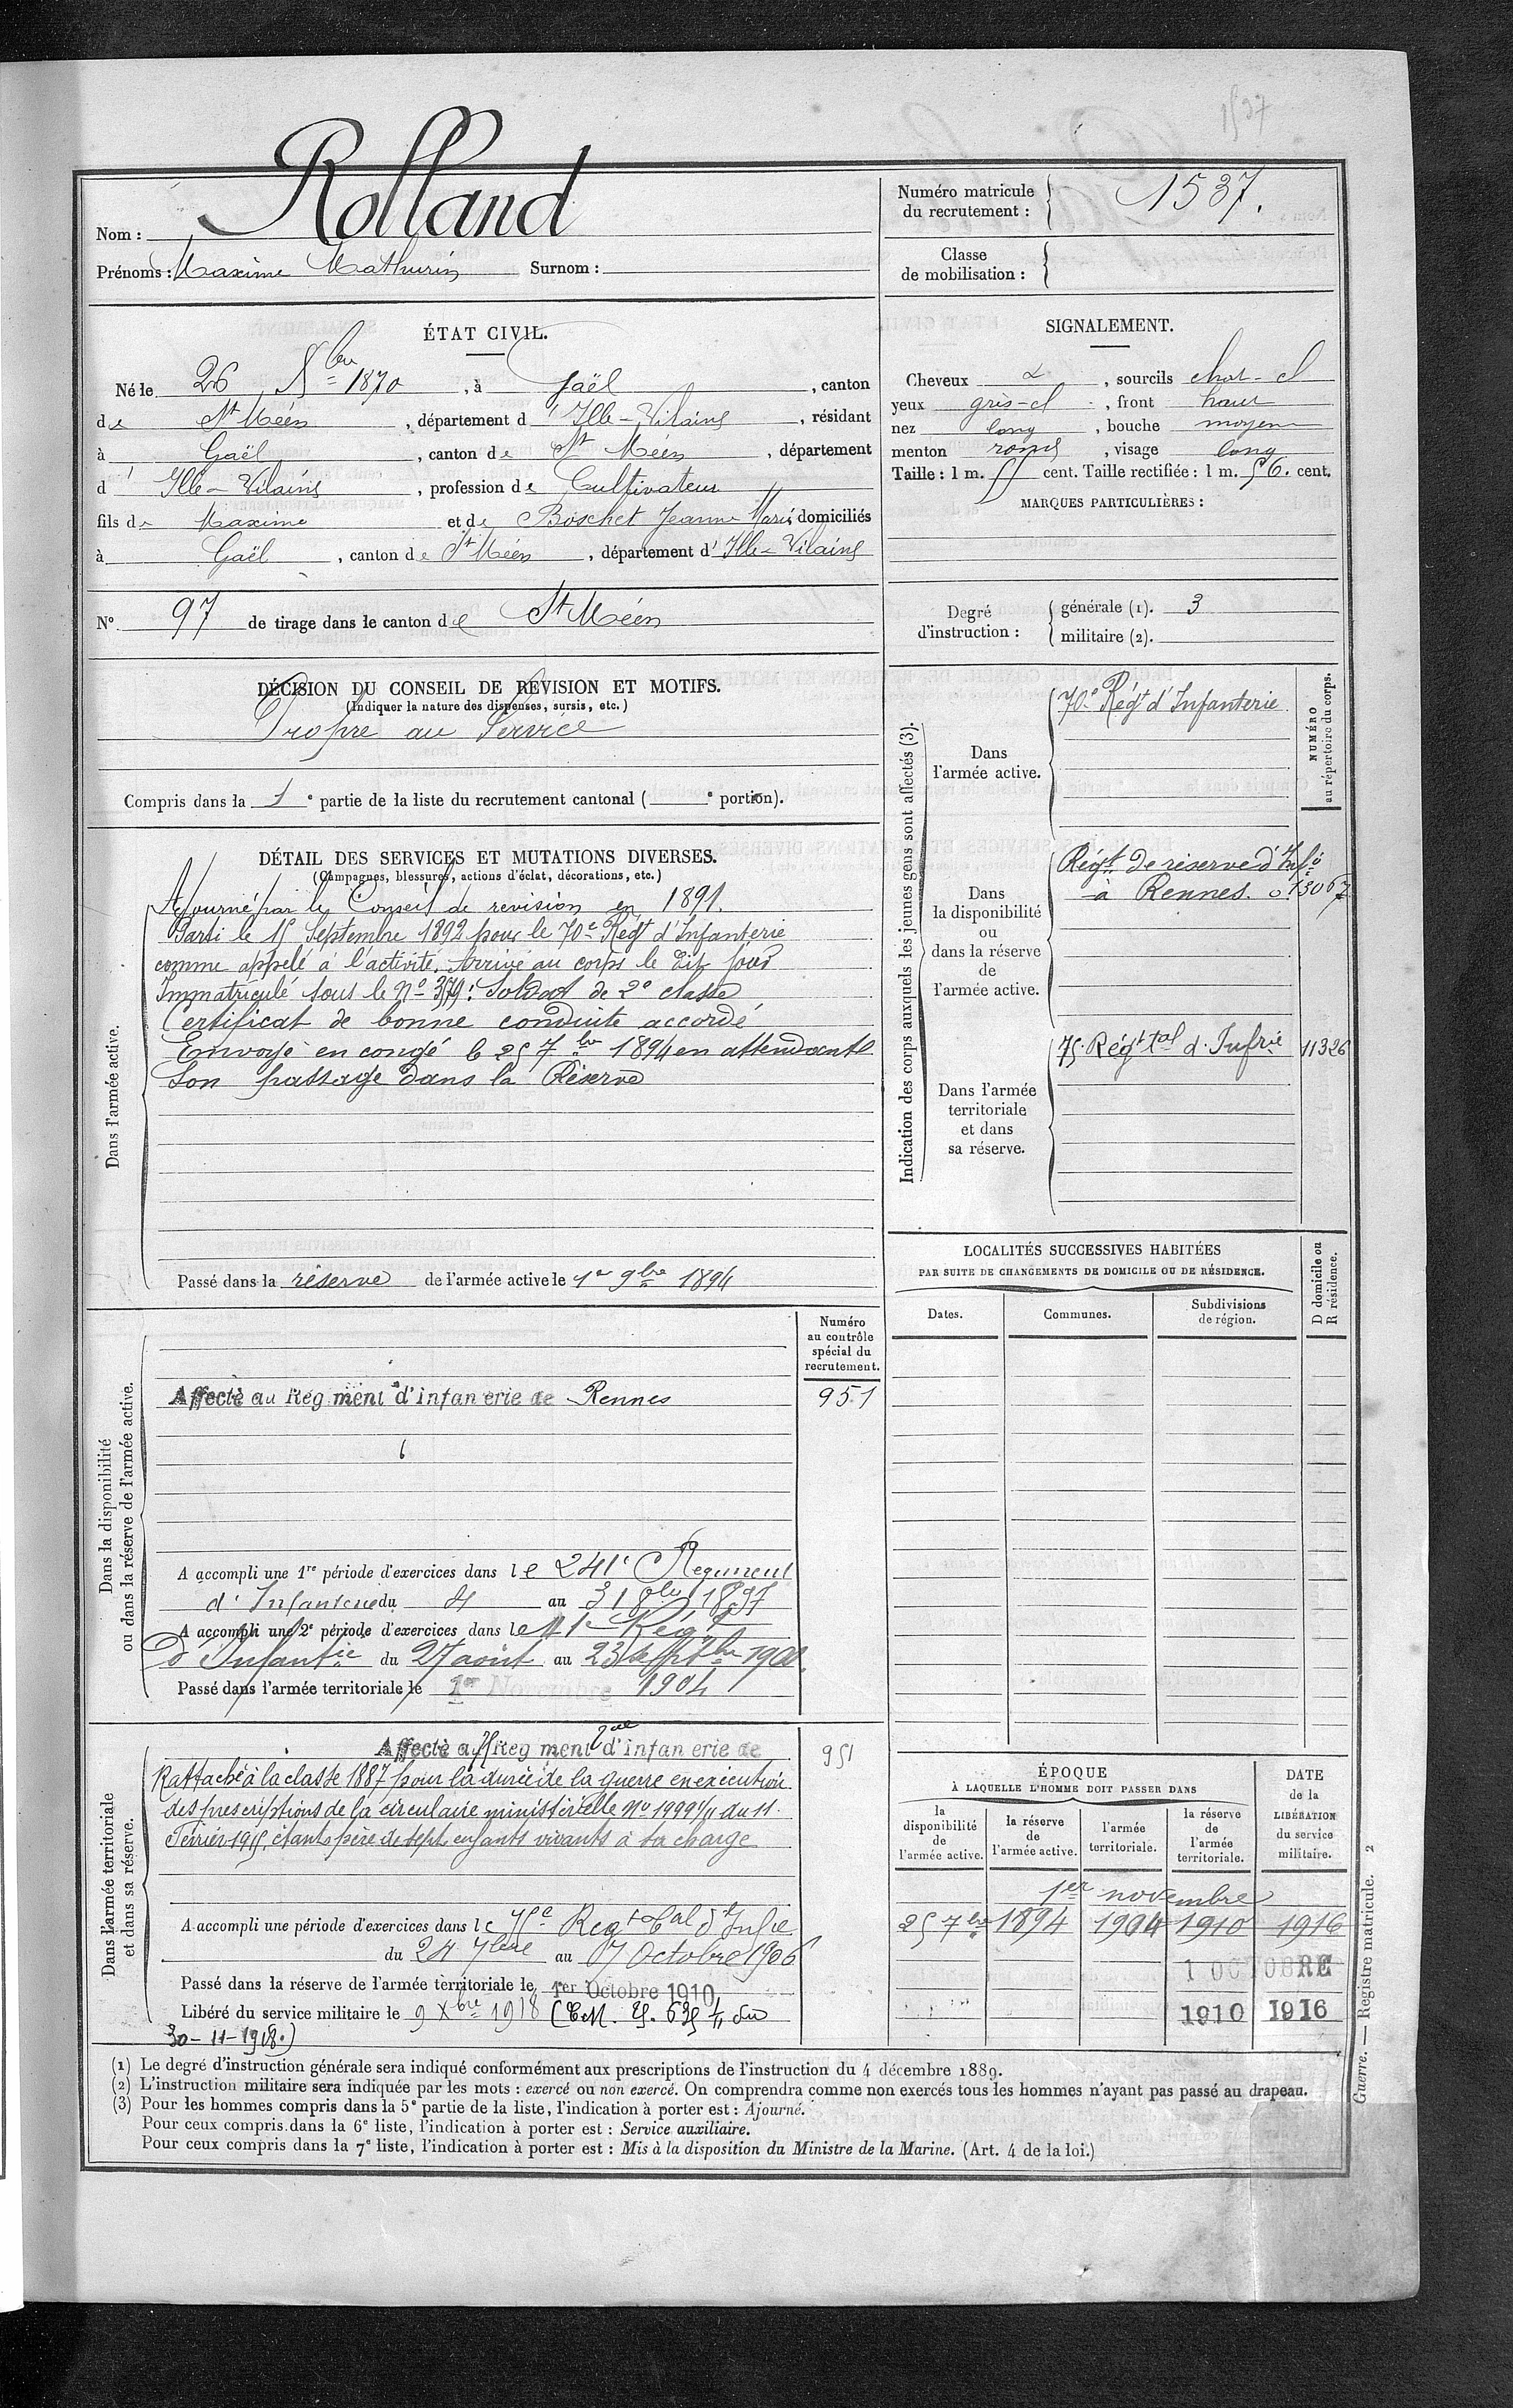 1537
Nom : Rolland
Prénoms : Maxime Mathurin Surnom :
Numéro matricule du recrutement : 1537.
Classe de mobilisation :
ÉTAT CIVIL.
Né le 26 Xbre 1870, à Gaël, canton
de St Méen, département d'Ille-Vilaine, résidant
à Gaël, canton de St Méen, département
d'Ille-Vilaine, profession de Cultivateur
fils de Maxime et de Boschet Jeanne Marie, domiciliés
à Gaël, canton de St Méen, département d'Ille-Vilaine
N° 97 de tirage dans le canton de St Méen
SIGNALEMENT.
Cheveux, sourcils chat-cl
yeux gris-cl, front haut
nez long, bouche moyenne
menton rond, visage long
Taille : 1 m. 55 cent. Taille rectifiée : 1 m. 56. cent.
MARQUES PARTICULIÈRES :
Degré d'instruction : générale (1). 3
militaire (2).
DÉCISION DU CONSEIL DE REVISION ET MOTIFS.
(Indiquer la nature des dispenses, sursis, etc.)
Propre au Service
Compris dans la 1e partie de la liste du recrutement cantonal ( e portion).
DÉTAIL DES SERVICES ET MUTATIONS DIVERSES.
(Campagnes, blessures, actions d'éclat, décorations, etc.)
Dans l'armée active.
Ajourné par le Conseil de revision en 1891.
Parti le 15 Septembre 1892 pour le 70e Régt d'Infanterie
comme appelé à l'activité. Arrivé au corps le dit jour
Immatriculé sous le No 3579 : Soldat de 2e classe
Certificat de bonne conduite accordé
Envoyé en congé le 25 7bre 1894 en attendant
son passage dans la Réserve
Passé dans la réserve de l'armée active le 1er 9bre 1894
Indication des corps auxquels les jeunes gens sont affectés (3).
NUMÉRO au répertoire du corps.
Dans l'armée active.
70e Régt d'Infanterie
Dans la disponibilité ou dans la réserve de l'armée active.
Régt de réserve d'Infie
à Rennes. 013067
Dans l'armée territoriale et dans sa réserve.
75 Régt tal d'Infrie 11326
LOCALITÉS SUCCESSIVES HABITÉES
PAR SUITE DE CHANGEMENTS DE DOMICILE OU DE RÉSIDENCE.
D domicile ou R résidence.
Dates. Communes. Subdivisions de région.
Dans la disponibilité ou dans la réserve de l'armée active.
Numéro au contrôle spécial du recrutement.
Affecté au Rég ment d'infan erie de Rennes 951
A accompli une 1re période d'exercices dans le 241e Regiment
d'Infanterie du 4 au 31 8bre 1897
A accompli une 2e période d'exercices dans le 41e Régt
d'Infantie du 27 août au 23 septbre 1900.
Passé dans l'armée territoriale le 1er Novembre 1904
Dans l'armée territoriale et dans sa réserve.
Affecté au 75 Rég ment tal d'infan erie de 951
Rattaché à la classe 1887 pour la durée de la guerre en exécution
des prescriptions de la circulaire ministérielle No 1999 1/11 du 11
Février 1915, étant père de sept enfants vivants à sa charge
A accompli une période d'exercices dans le 75e Regt tal d'Infie
du 24 7bre au 07 Octobre 1906
Passé dans la réserve de l'armée territoriale le 1er Octobre 1910
Libéré du service militaire le 9 Xbre 1918 (C.M. du
30-11-1918.)
ÉPOQUE
À LAQUELLE L'HOMME DOIT PASSER DANS
la disponibilité de l'armée active.
la réserve de l'armée active.
l'armée territoriale.
la réserve de l'armée territoriale.
DATE de la LIBÉRATION du service militaire.
1er novembre
25 7bre 1894 1904 1910 1916
1 OCTOBRE
1910 1916
Guerre. — Registre matricule. 2
(1) Le degré d'instruction générale sera indiqué conformément aux prescriptions de l'instruction du 4 décembre 1889.
(2) L'instruction militaire sera indiquée par les mots : exercé ou non exercé. On comprendra comme non exercés tous les hommes n'ayant pas passé au drapeau.
(3) Pour les hommes compris dans la 5e partie de la liste, l'indication à porter est : Ajourné.
Pour ceux compris dans la 6e liste, l'indication à porter est : Service auxiliaire.
Pour ceux compris dans la 7e liste, l'indication à porter est : Mis à la disposition du Ministre de la Marine. (Art. 4 de la loi.)